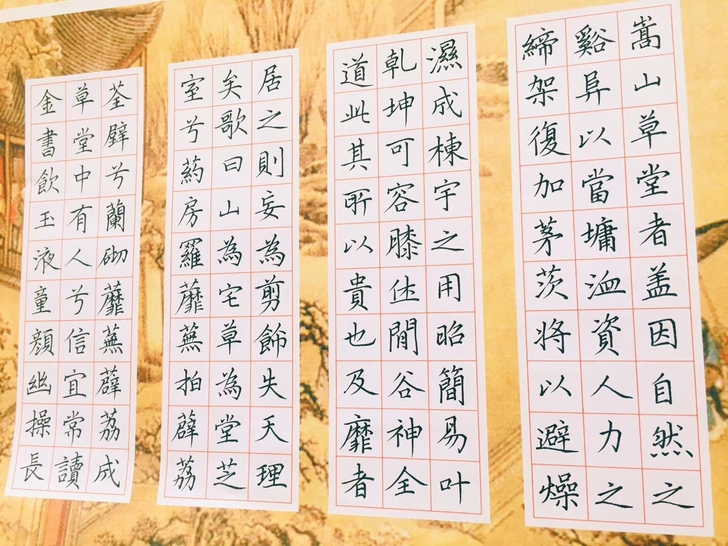 嵩山草堂者盖因自然之
谿阜以當墉洫資人力之
締架復加茅茨將以避燥
濕成棟宇之用昭簡易叶
乾坤可容膝休閒谷神全
道此其所以貴也及靡者
居之則妄為剪飾失天理
矣歌曰山為宅草為堂芝
室兮葯房羅蘼蕪拍薜荔
荃壁兮蘭砌蘼蕪薜荔成
草堂中有人兮信宜常讀
金書飲玉液童顏幽操長